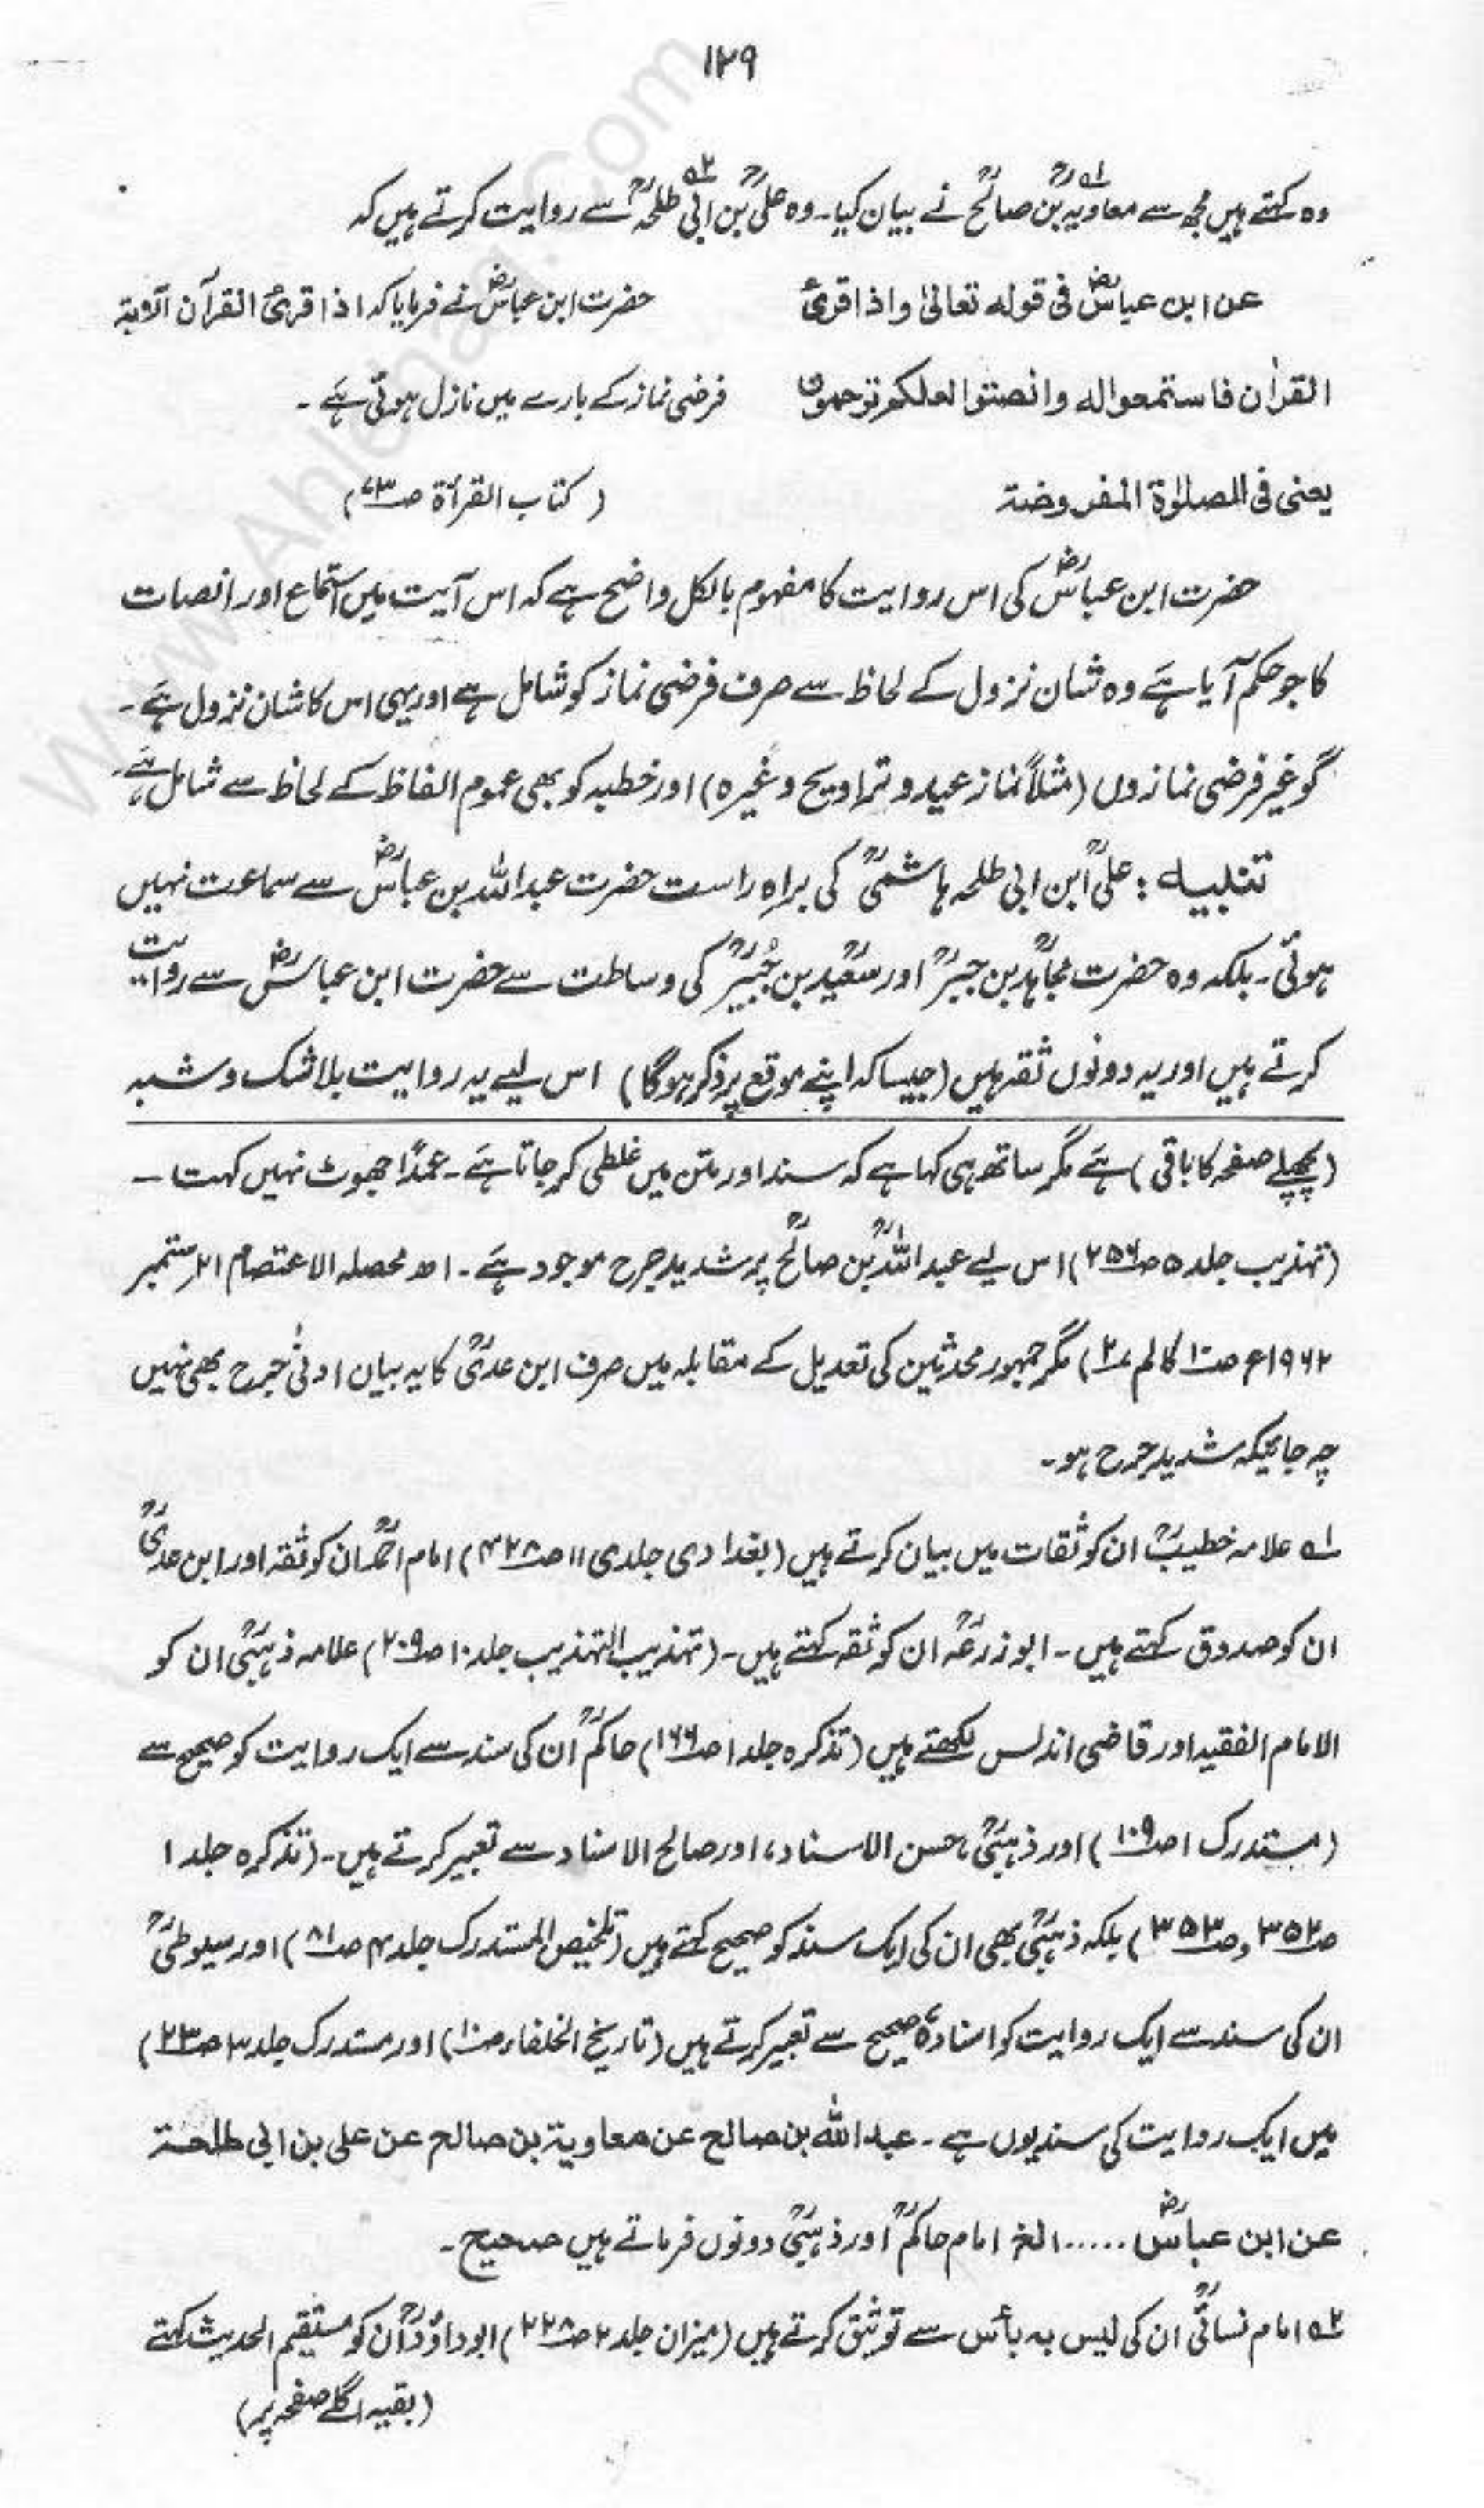 ۱۲۹
وہ کہتے ہیں مجھ سے معاویہؒ بن صالحؒ نے بیان کیا۔ وہ علیؒ بن ابی طلحہؒ سے روایت کرتے ہیں کہ
عن ابن عباسؓ فی قولہ تعالیٰ واذا قرئ
حضرت ابن عباسؓ نے فرمایا کہ اذا قرئ القرآن الآیۃ
القرٰان فاستمعوا لہ وانصتوا لعلکم ترحمون
فرضی نماز کے بارے میں نازل ہوئی ہے۔
یعنی فی الصلوٰۃ المفروضۃ
(کتاب القرأۃ ص۷۳)
حضرت ابن عباسؓ کی اس روایت کا مفہوم بالکل واضح ہے کہ اس آیت میں استماع اور انصات
کا جو حکم آیا ہے وہ شان نزول کے لحاظ سے صرف فرضی نماز کو شامل ہے اور یہی اس کا شان نزول ہے۔
گو غیر فرضی نمازوں (مثلاً نماز عید و تراویح وغیرہ) اور خطبہ کو بھی عموم الفاظ کے لحاظ سے شامل ہے
تنبیہ: علیؒ ابن ابی طلحہ ہاشمیؒ کی براہِ راست حضرت عبداللہ بن عباسؓ سے سماعت نہیں
ہوئی۔ بلکہ وہ حضرت مجاہدؒ بن جبرؒ اور سعیدؒ بن جُبیرؒ کی وساطت سے حضرت ابن عباسؓ سے روایت
کرتے ہیں اور یہ دونوں ثقہ ہیں (جیسا کہ اپنے موقع پر ذکر ہوگا) اس لیے یہ روایت بلا شک و شبہ
(پچھلے صفحہ کا باقی) ہے مگر ساتھ ہی کہا ہے کہ سند اور متن میں غلطی کر جاتا ہے۔ عمداً جھوٹ نہیں کہتا۔
(تہذیب جلد ۵ ص۲۵۶) اس لیے عبداللہؒ بن صالحؒ پر شدید جرح موجود ہے۔ اھ محصلہ الاعتصام ۲۱ ستمبر
۱۹۶۲ء ص۱۰ کالم ۲) مگر جمہور محدثین کی تعدیل کے مقابلہ میں صرف ابن عدیؒ کا یہ بیان ادنیٰ جرح بھی نہیں
چہ جائیکہ شدید جرح ہو۔
۱ علامہ خطیبؒ ان کو ثقات میں بیان کرتے ہیں (بغدادی جلدی ۱۱ ص۴۲۸) امام احمدؒ ان کو ثقہ اور ابن عدیؒ
ان کو صدوق کہتے ہیں۔ ابوزرعہؒ ان کو ثقہ کہتے ہیں۔ (تہذیب التہذیب جلد ۱۰ ص۲۰۹) علامہ ذہبیؒ ان کو
الامام الفقیہ اور قاضی اندلس لکھتے ہیں (تذکرہ جلد ۱ ص۱۶۶) حاکمؒ ان کی سند سے ایک روایت کو صحیح سے
(مستدرک ۱ ص۱۰۹) اور ذہبیؒ، حسن الاسناد، اور صالح الاسناد سے تعبیر کرتے ہیں۔ (تذکرہ جلد ۱
ص۳۵۲ و ص۳۵۳) بلکہ ذہبیؒ بھی ان کی ایک سند کو صحیح کہتے ہیں (تلخیص المستدرک جلد ۴ ص۸۱) اور سیوطیؒ
ان کی سند سے ایک روایت کو اسنادہٗ صحیح سے تعبیر کرتے ہیں (تاریخ الخلفاء ص۱۰) اور مستدرک جلد ۳ ص۲۳)
میں ایک روایت کی سند یوں ہے۔ عبداللہ بن صالح عن معاویۃ بن صالح عن علی بن ابی طلحۃ
عن ابن عباسؓ ..... الخ امام حاکمؒ اور ذہبیؒ دونوں فرماتے ہیں صحیح۔
۲ امام نسائیؒ ان کی لیس بہ بأس سے توثیق کرتے ہیں (میزان جلد ۲ ص۲۲۸) ابوداؤدؒ ان کو مستقیم الحدیث کہتے
(بقیہ اگلے صفحہ پر)
www.Ahlehaq.Com